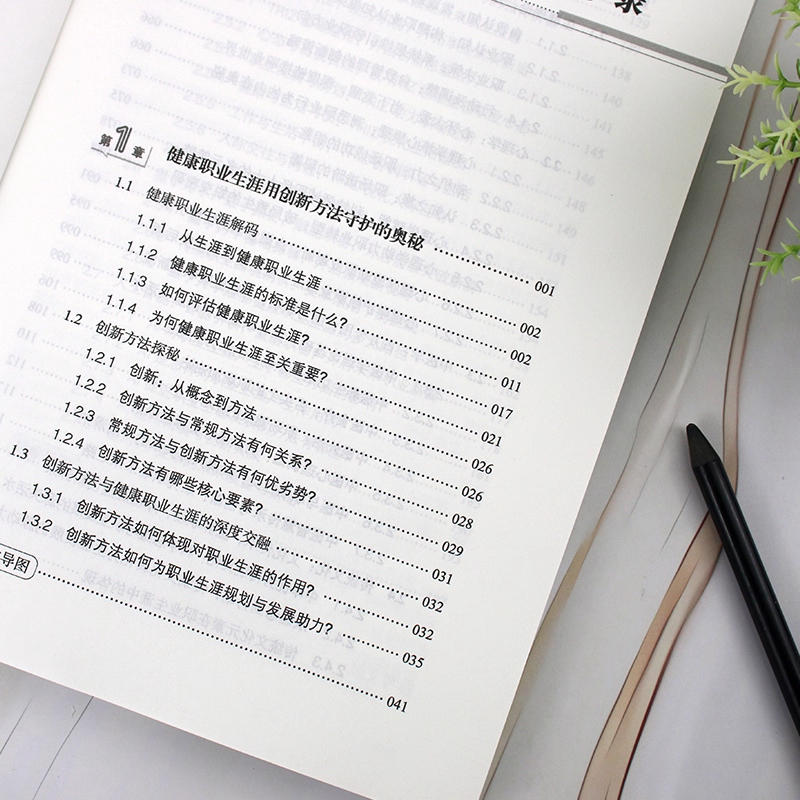 录
第1章 健康职业生涯用创新方法守护的奥秘 001
1.1 健康职业生涯解码 002
1.1.1 从生涯到健康职业生涯 002
1.1.2 健康职业生涯的标准是什么? 011
1.1.3 如何评估健康职业生涯? 017
1.1.4 为何健康职业生涯至关重要? 021
1.2 创新方法探秘 026
1.2.1 创新:从概念到方法 026
1.2.2 创新方法与常规方法有何关系? 028
1.2.3 常规方法与创新方法有何优劣势? 029
1.2.4 创新方法有哪些核心要素? 031
1.3 创新方法与健康职业生涯的深度交融 032
1.3.1 创新方法如何体现对职业生涯的作用? 032
1.3.2 创新方法如何为职业生涯规划与发展助力? 035
导图 041